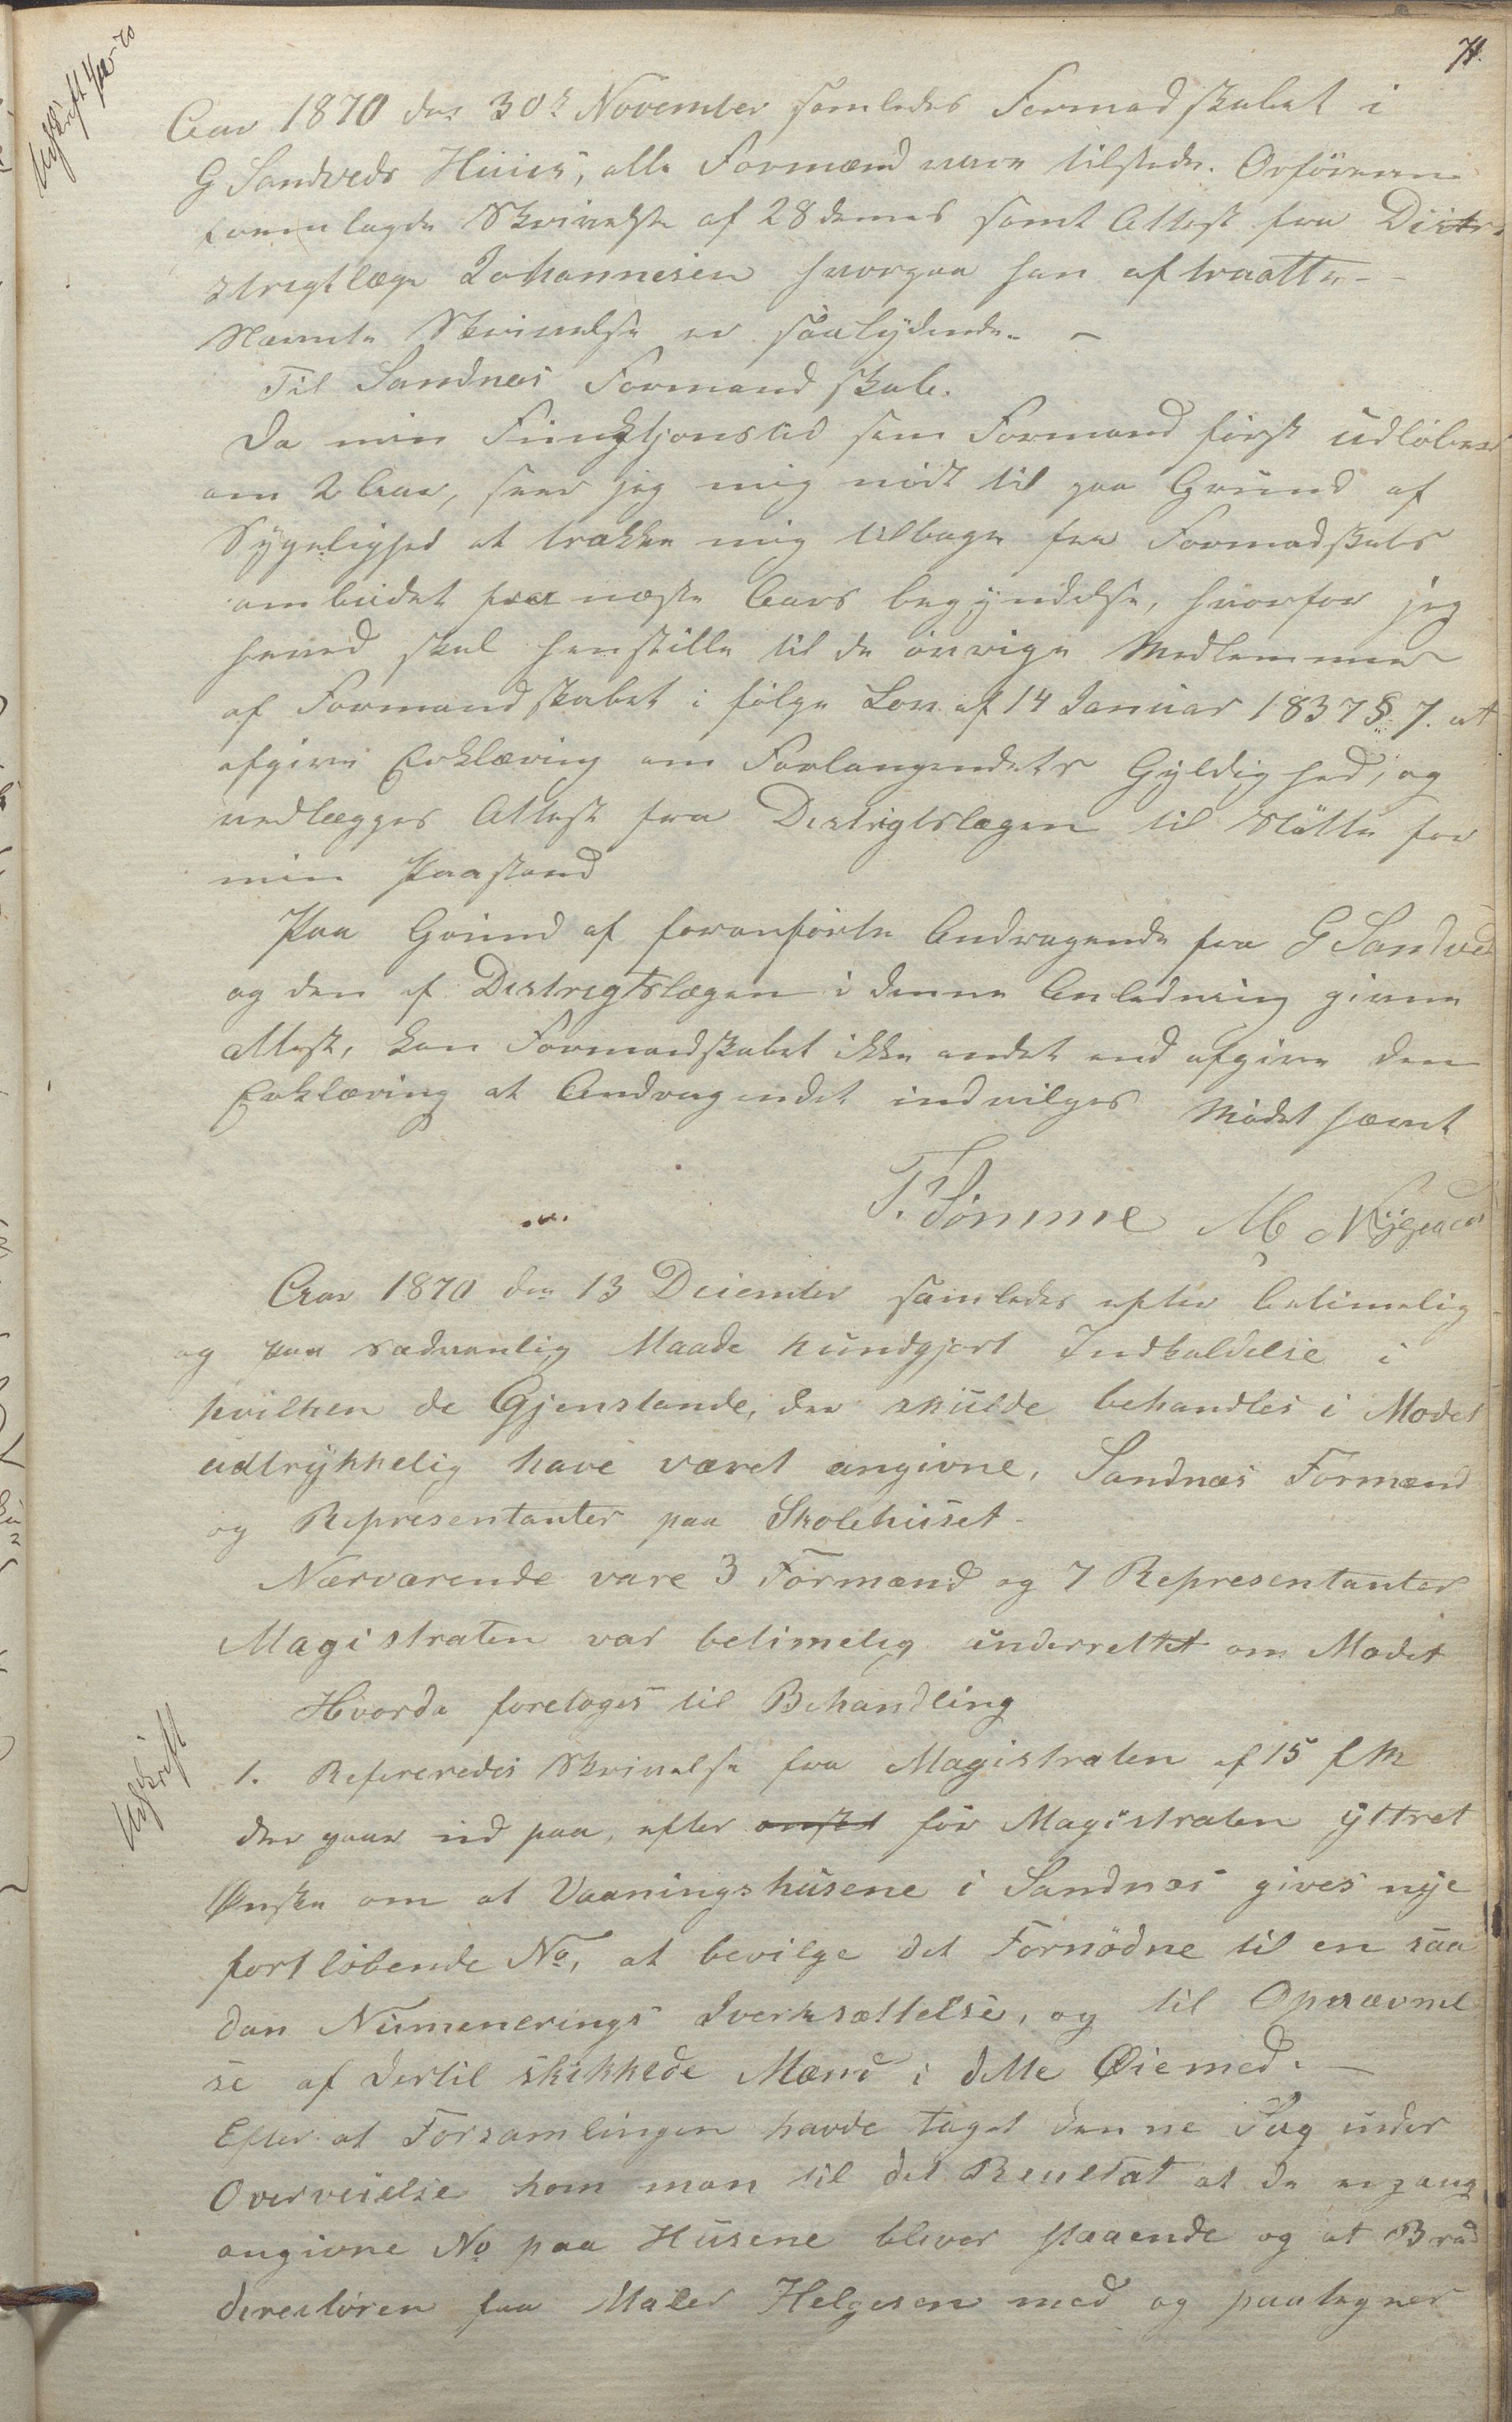 71.
Udskrift 1/12-70
Aar 1870 den 30te November samledes Formadskabet i
G Sandveds Huus, alle Formænd vare tilstede. Orføreren
fremlagde Skrivelse af 28 dennes samt Attest fra Distr
strigtlæge Johannesen hvorpaa han aftraatte -
Nævnte Skrivelse er saalydende. -
Til Sandnæs Formandskab.
Da min Funktjonstid som Formand først udløber
om 2 Aar, seer jeg mig nødt til paa Grund af
Sygelighed at trække mig tilbage fra Formadskabs
ombudet fra næste Aars begyndelse, hvorfor jeg
herved skal henstille til de øvrige Medlemmer
af Formandskabet i følge Lov af 14 Januar 1837 §. 7. at
afgive Erklæring om Forlangendets Gyldighed, og
vedlægges Attest fra Distrigtslægen til Støtte for
min Paastand
Paa Grund af foranførte Andragende fra G Sandved
og den af Distrigtslægen i denne Anledning givne
Attest, kan Formandskabet ikke andet end afgive den
Erklæring at Andragendet indvilges Mødet hævet
T. Tømme M Nygaard
Aar 1870 den 13 December samledes efter betimelig
og paa sædvanlig Maade kundgjort Indkaldelse i
hvilken de Gjenstande, der skulde behandles i Modet
udtrykkelig have været angivne, Sandnæs Formænd
og Representanter paa Skolehuset.
Nærværende vare 3 Formænd og 7 Representanter
Magistraten var betimelig underrettet om Modet
Hvorda foretoges til Behandling
Udskrift
1. Refereredes Skrivelse fra Magistraten af 15 f M
der gaar ud paa, efter ønsket for Magistraten yttret
Ønske om at Vaaningshusene i Sandnæs gives nye
fortløbende No, at bevilge det Fornødne til en saa
dan Numenerings Iverksættelse, og til Opnævnel
se af dertil skikkede Mænd i dette Øiemed. -
Efter at Forsamlingen havde taget denne Sag under
Overveielse kom man til det Resultat at de engang
angivne No paa Husene bliver staaende og at Brand
direktøren faa Maler Helgesen med og paategner